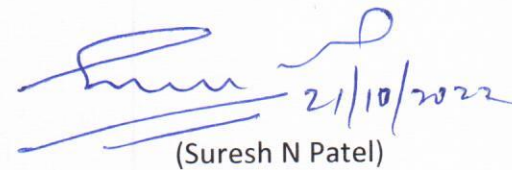 21/10/2022
(Suresh N Patel)